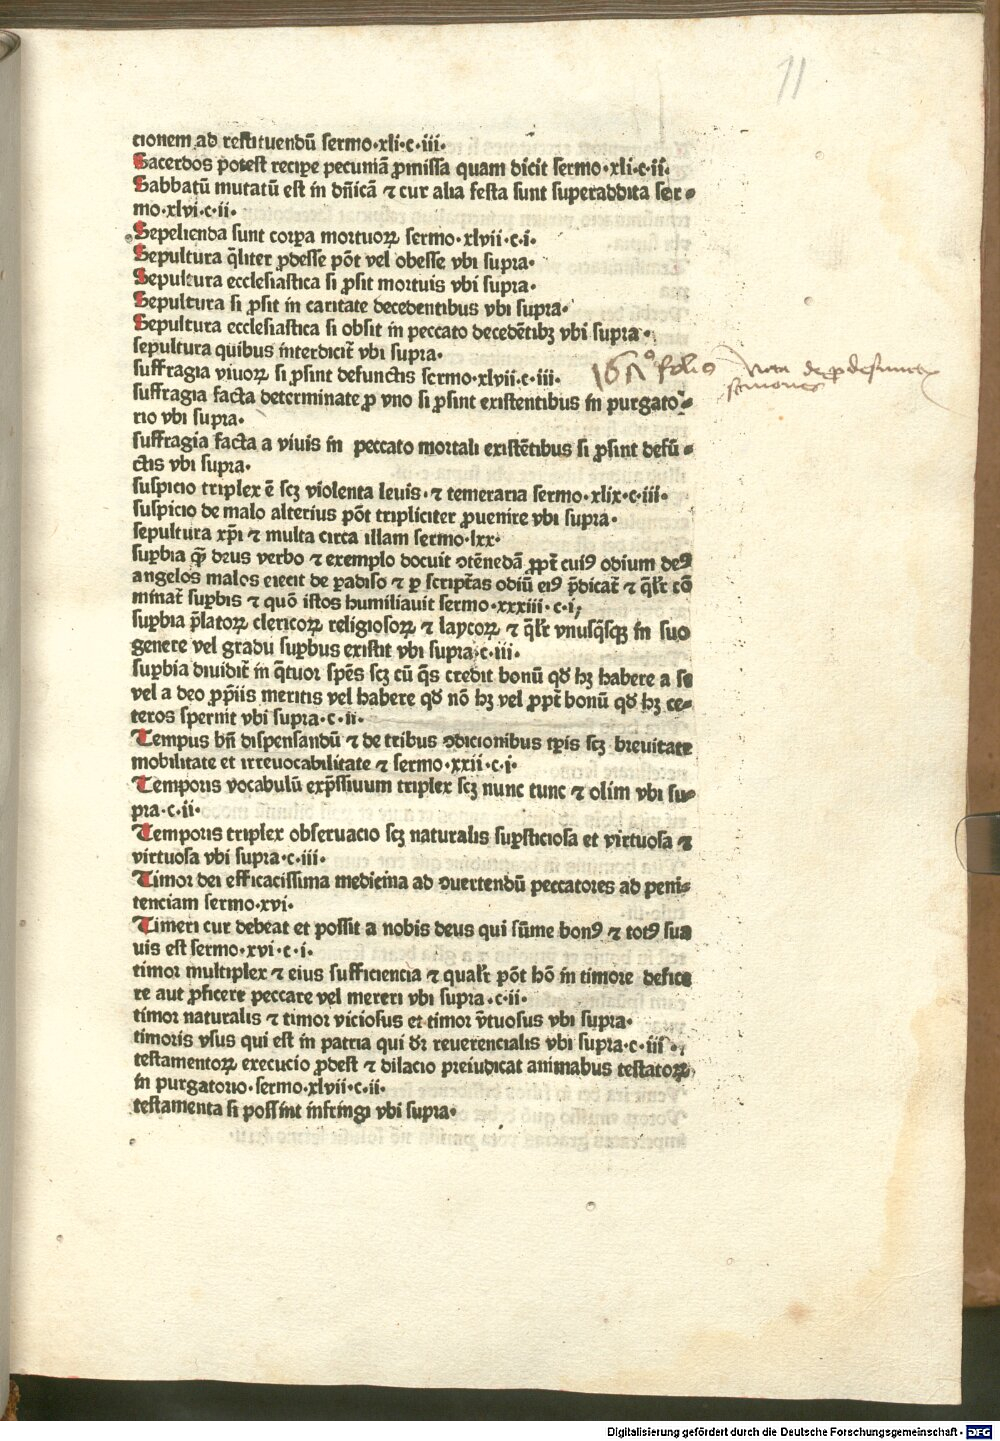 11
cionem ad restituendū sermo·xli·c·iii·
Sacerdos potest recipe pecuniā ꝓmissa quam dicit sermo·xli·c·ii·
Sabbatū mutatū est in dn̄icā ⁊ cur alia festa sunt superaddita ser⸗
mo·xlvi·c·ii·
Sepelienda sunt corꝑa mortuoꝝ sermo·xlvii·c·i·
Sepultura q̄liter ꝓdesse pōt vel obesse vbi supra·
Sepultura ecclesiastica si ꝓsit mortuis vbi supra·
Sepultura si ꝓsit in caritate decedentibus vbi supra·
Sepultura ecclesiastica si obsit in peccato decedētibꝫ vbi supra·
sepultura quibus interdicit̄ vbi supra·
suffragia viuoꝝ si ꝓsint defunctis sermo·xlvii·c·iii·
suffragia facta determinate ꝓ vno si ꝓsint existentibus in purgato⸗
rio vbi supra·
suffragia facta a viuis in peccato mortali existētibus si ꝓsint defū⸗
ctis vbi supra·
suspicio triplex ē scꝫ violenta leuis·⁊ temeraria sermo·xlix·c·iii·
suspicio de malo alterius pōt tripliciter ꝓuenire vbi supra·
sepultura xp̄i ⁊ multa circa illam sermo·lxx·
suꝑbia q̄ꝫ deus verbo ⁊ exemplo docuit ↄtēnedā ꝓpt̄ cuiꝰ odium deꝰ
angelos malos eiecit de ꝑadiso ⁊ ꝑ scriptͣas odiū eiꝰ p̄dicat̄ ⁊ q̄lr̄ cō
minat̄ suꝑbis ⁊ quō istos humiliauit sermo·xxxiii·c·i·
suꝑbia p̄latoꝝ clericoꝝ religiosoꝝ ⁊ laycoꝝ ⁊ q̄lr̄ vnusq̄sqꝫ in suo
genere vel gradu suꝑbus existit vbi supra·c·iii·
suꝑbia diuidit̄ in q̄tuor sp̄es scꝫ cū q̄s credit bonū qd̄ hꝫ habere a se
vel a deo ꝓp̄riis meritis vel habere qd̄ nō hꝫ vel ꝓpt̄ bonū qd̄ hꝫ ce⸗
teros spernit vbi supra·c·ii·
Tempus bn̄ dispensandū ⁊ de tribus ↄdicionibus tꝑis scꝫ breuitate
mobilitate et irreuocabilitate ⁊ sermo·xxii·c·i·
Temporis vocabulū exp̄ssiuum triplex scꝫ nunc tunc ⁊ olim vbi su⸗
pra·c·ii·
Temporis triplex obseruacio scꝫ naturalis suꝑsticiosa et virtuosa ⁊
virtuosa vbi supra·c·iii·
Timor dei efficacissima medicina ad ↄuertendū peccatores ad peni⸗
tenciam sermo·xvi·
Timeri cur debeat et possit a nobis deus qui sūme bonꝰ ⁊ totꝰ sua
uis est sermo·xvi·c·i·
timor multiplex ⁊ eius sufficiencia ⁊ qualr̄ pōt hō in timore defice
re aut ꝓficere peccare vel mereri vbi supra·c·ii·
timor naturalis ⁊ timor viciosus et timor v̄tuosus vbi supra·
timoris vsus qui est in patria qui dr̄ reuerencialis vbi supra·c·iii·
testamentoꝝ execucio ꝓdest ⁊ dilacio preiudicat animabus testatoꝝ
in purgatorio·sermo·xlvii·c·ii·
testamenta si possint infringi vbi supra·
folio
Nota de ꝓ defunct
sermones
Digitalisierung gefördert durch die Deutsche Forschungsgemeinschaft - DFG